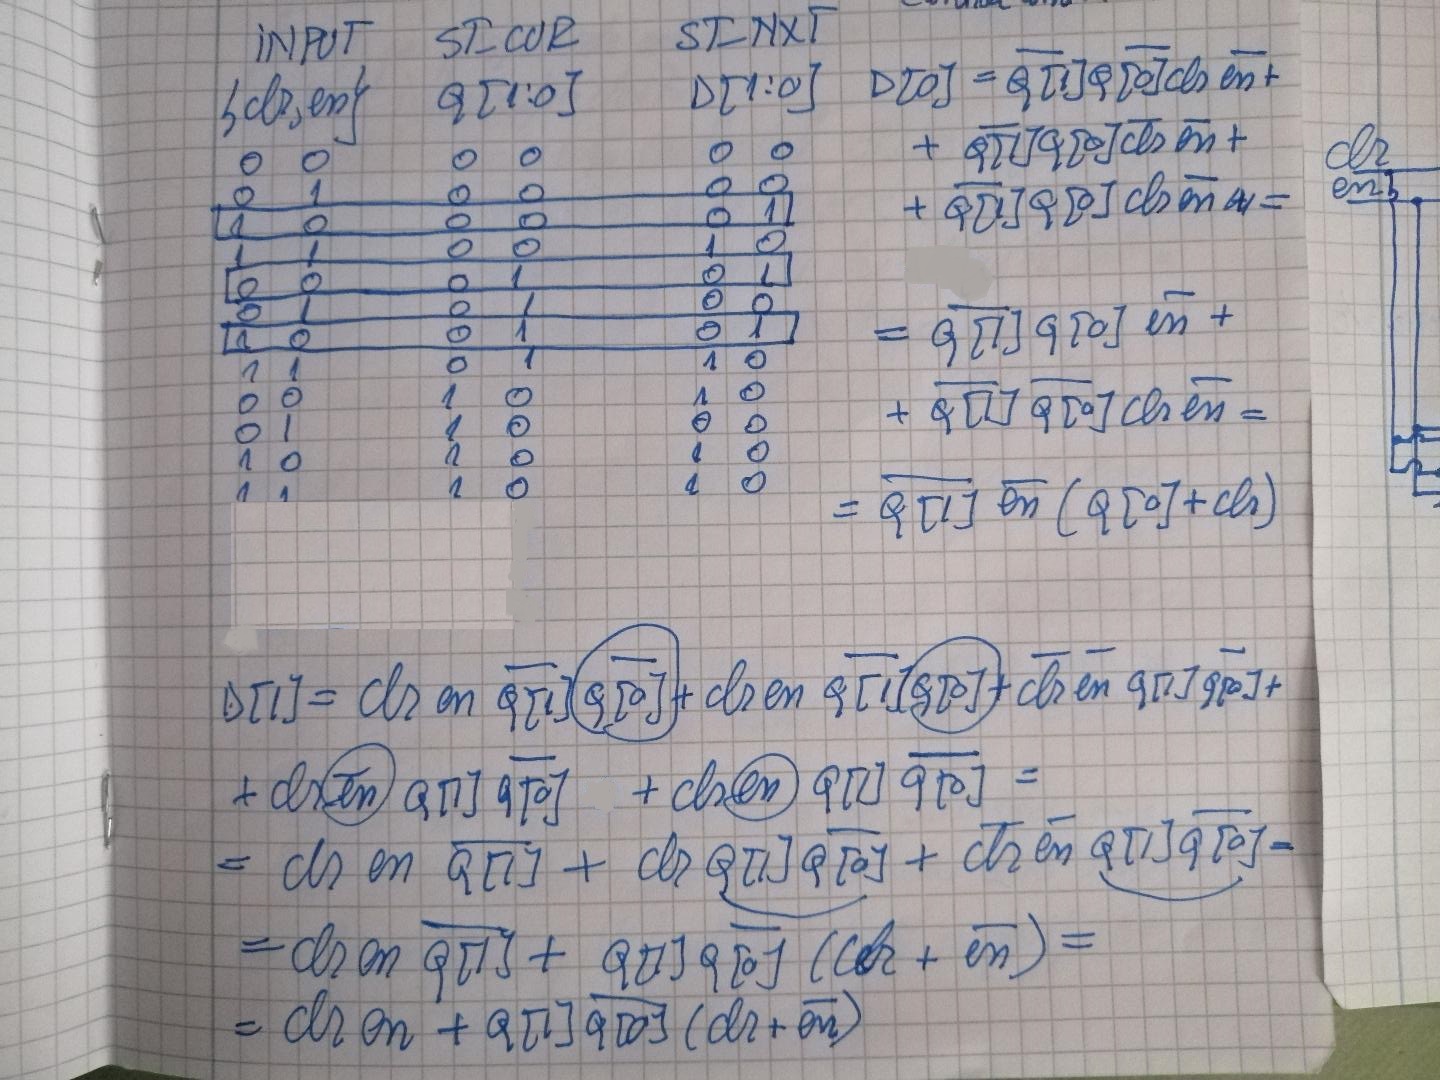 INPUT ST_CUR ST_NXT
{clr,en} Q[1:0] D[1:0]
0 0 0 0 0 0
0 1 0 0 0 0
1 0 0 0 0 1
1 1 0 0 1 0
0 0 0 1 0 1
0 1 0 1 0 0
1 0 0 1 0 1
1 1 0 1 1 0
0 0 1 0 1 0
0 1 1 0 0 0
1 0 1 0 1 0
1 1 1 0 1 0
D[0] = Q̅[̅1̅]̅ Q̅[̅0̅]̅ clr e̅n̅ +
+ Q̅[̅1̅]̅ Q[0] c̅l̅r̅ e̅n̅ +
+ Q̅[̅1̅]̅ Q[0] clr e̅n̅ =
= Q̅[̅1̅]̅ Q[0] e̅n̅ +
+ Q̅[̅1̅]̅ Q̅[̅0̅]̅ clr e̅n̅ =
= Q̅[̅1̅]̅ e̅n̅ (Q[0] + clr)
clr
en
D[1] = clr en Q̅[̅1̅]̅ Q̅[̅0̅]̅ + clr en Q̅[̅1̅]̅ Q[0] + c̅l̅r̅ e̅n̅ Q[1] Q̅[̅0̅]̅ +
+ clr e̅n̅ Q[1] Q̅[̅0̅]̅ + clr en Q[1] Q̅[̅0̅]̅ =
= clr en Q̅[̅1̅]̅ + clr Q[1] Q̅[̅0̅]̅ + c̅l̅r̅ e̅n̅ Q[1] Q̅[̅0̅]̅ =
= clr en Q̅[̅1̅]̅ + Q[1] Q̅[̅0̅]̅ (clr + e̅n̅) =
= clr en + Q[1] Q̅[̅0̅]̅ (clr + e̅n̅)